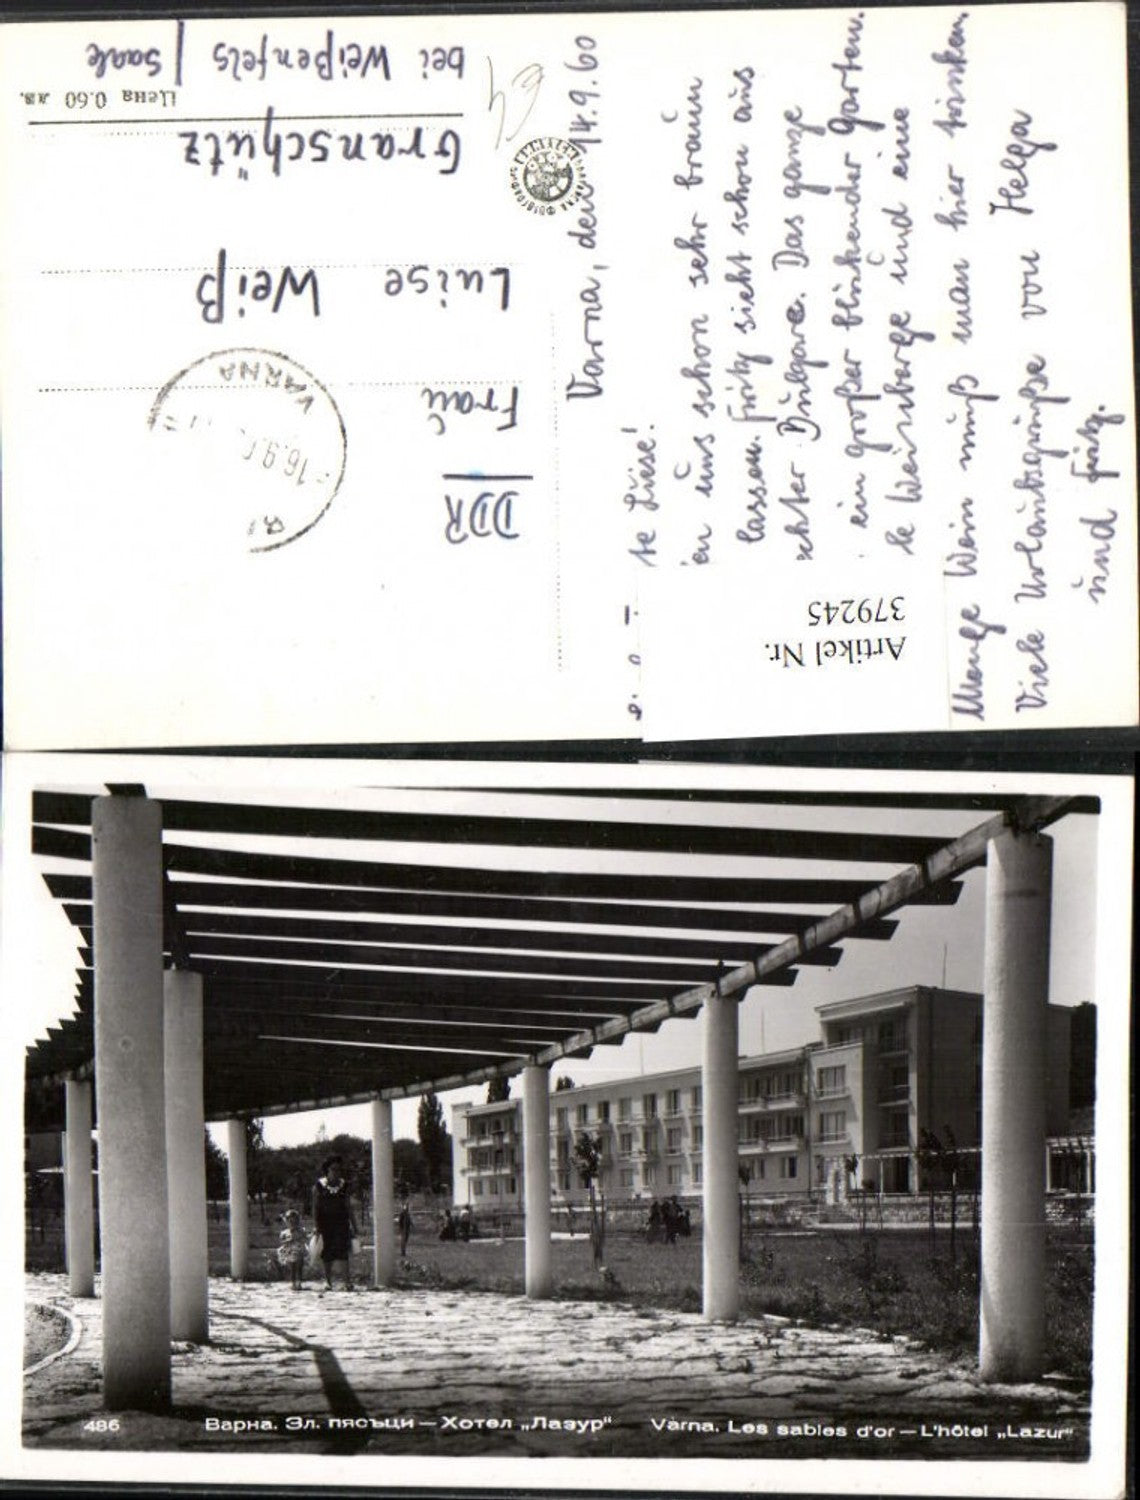 Varna, den 14.9.60
te Liese!
en uns schon sehr braun
lassen. Fritz sieht schon aus
chter Bulgare. Das ganze
ein großer blühender Garten.
le Weinberge und eine
Menge Wein muß man hier trinken.
Viele Urlaubsgrüße von Helga
und Fritz.
DDR
Frau
Luise Weiß
Granschütz
bei Weißenfels / Saale
Цена 0.60 лв.
VARNA
Artikel Nr.
379245
486 Варна. Зл. пясъци — Хотел „Лазур“ Varna. Les sables d'or — L'hôtel „Lazur“